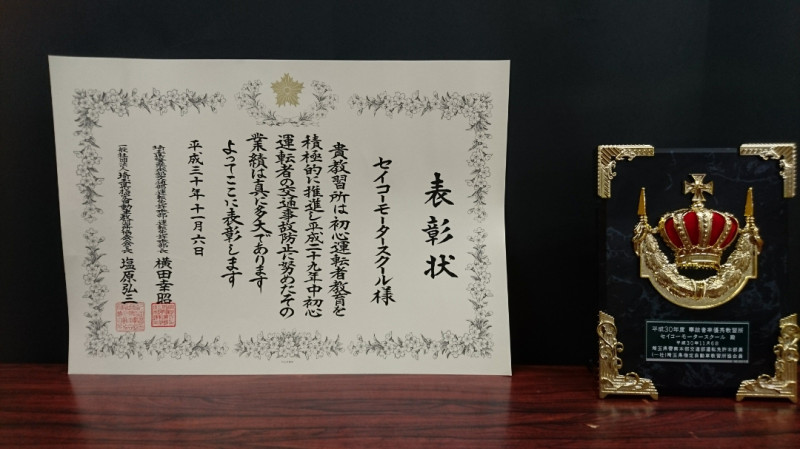 表彰状
セイコーモータースクール様
貴教習所は初心運転者教育を
積極的に推進し平成二十九年中初心
運転者の交通事故防止に努めたその
業績は真に多大であります
よってここに表彰します
平成三十年十一月六日
埼玉県警察本部交通部運転免許本部長 横田幸昭
一般社団法人埼玉県指定自動車教習所協会会長 塩原弘三
平成30年度 事故者率優秀教習所
セイコーモータースクール 殿
平成30年11月6日
埼玉県警察本部交通部運転免許本部長
(一社)埼玉県指定自動車教習所協会会長